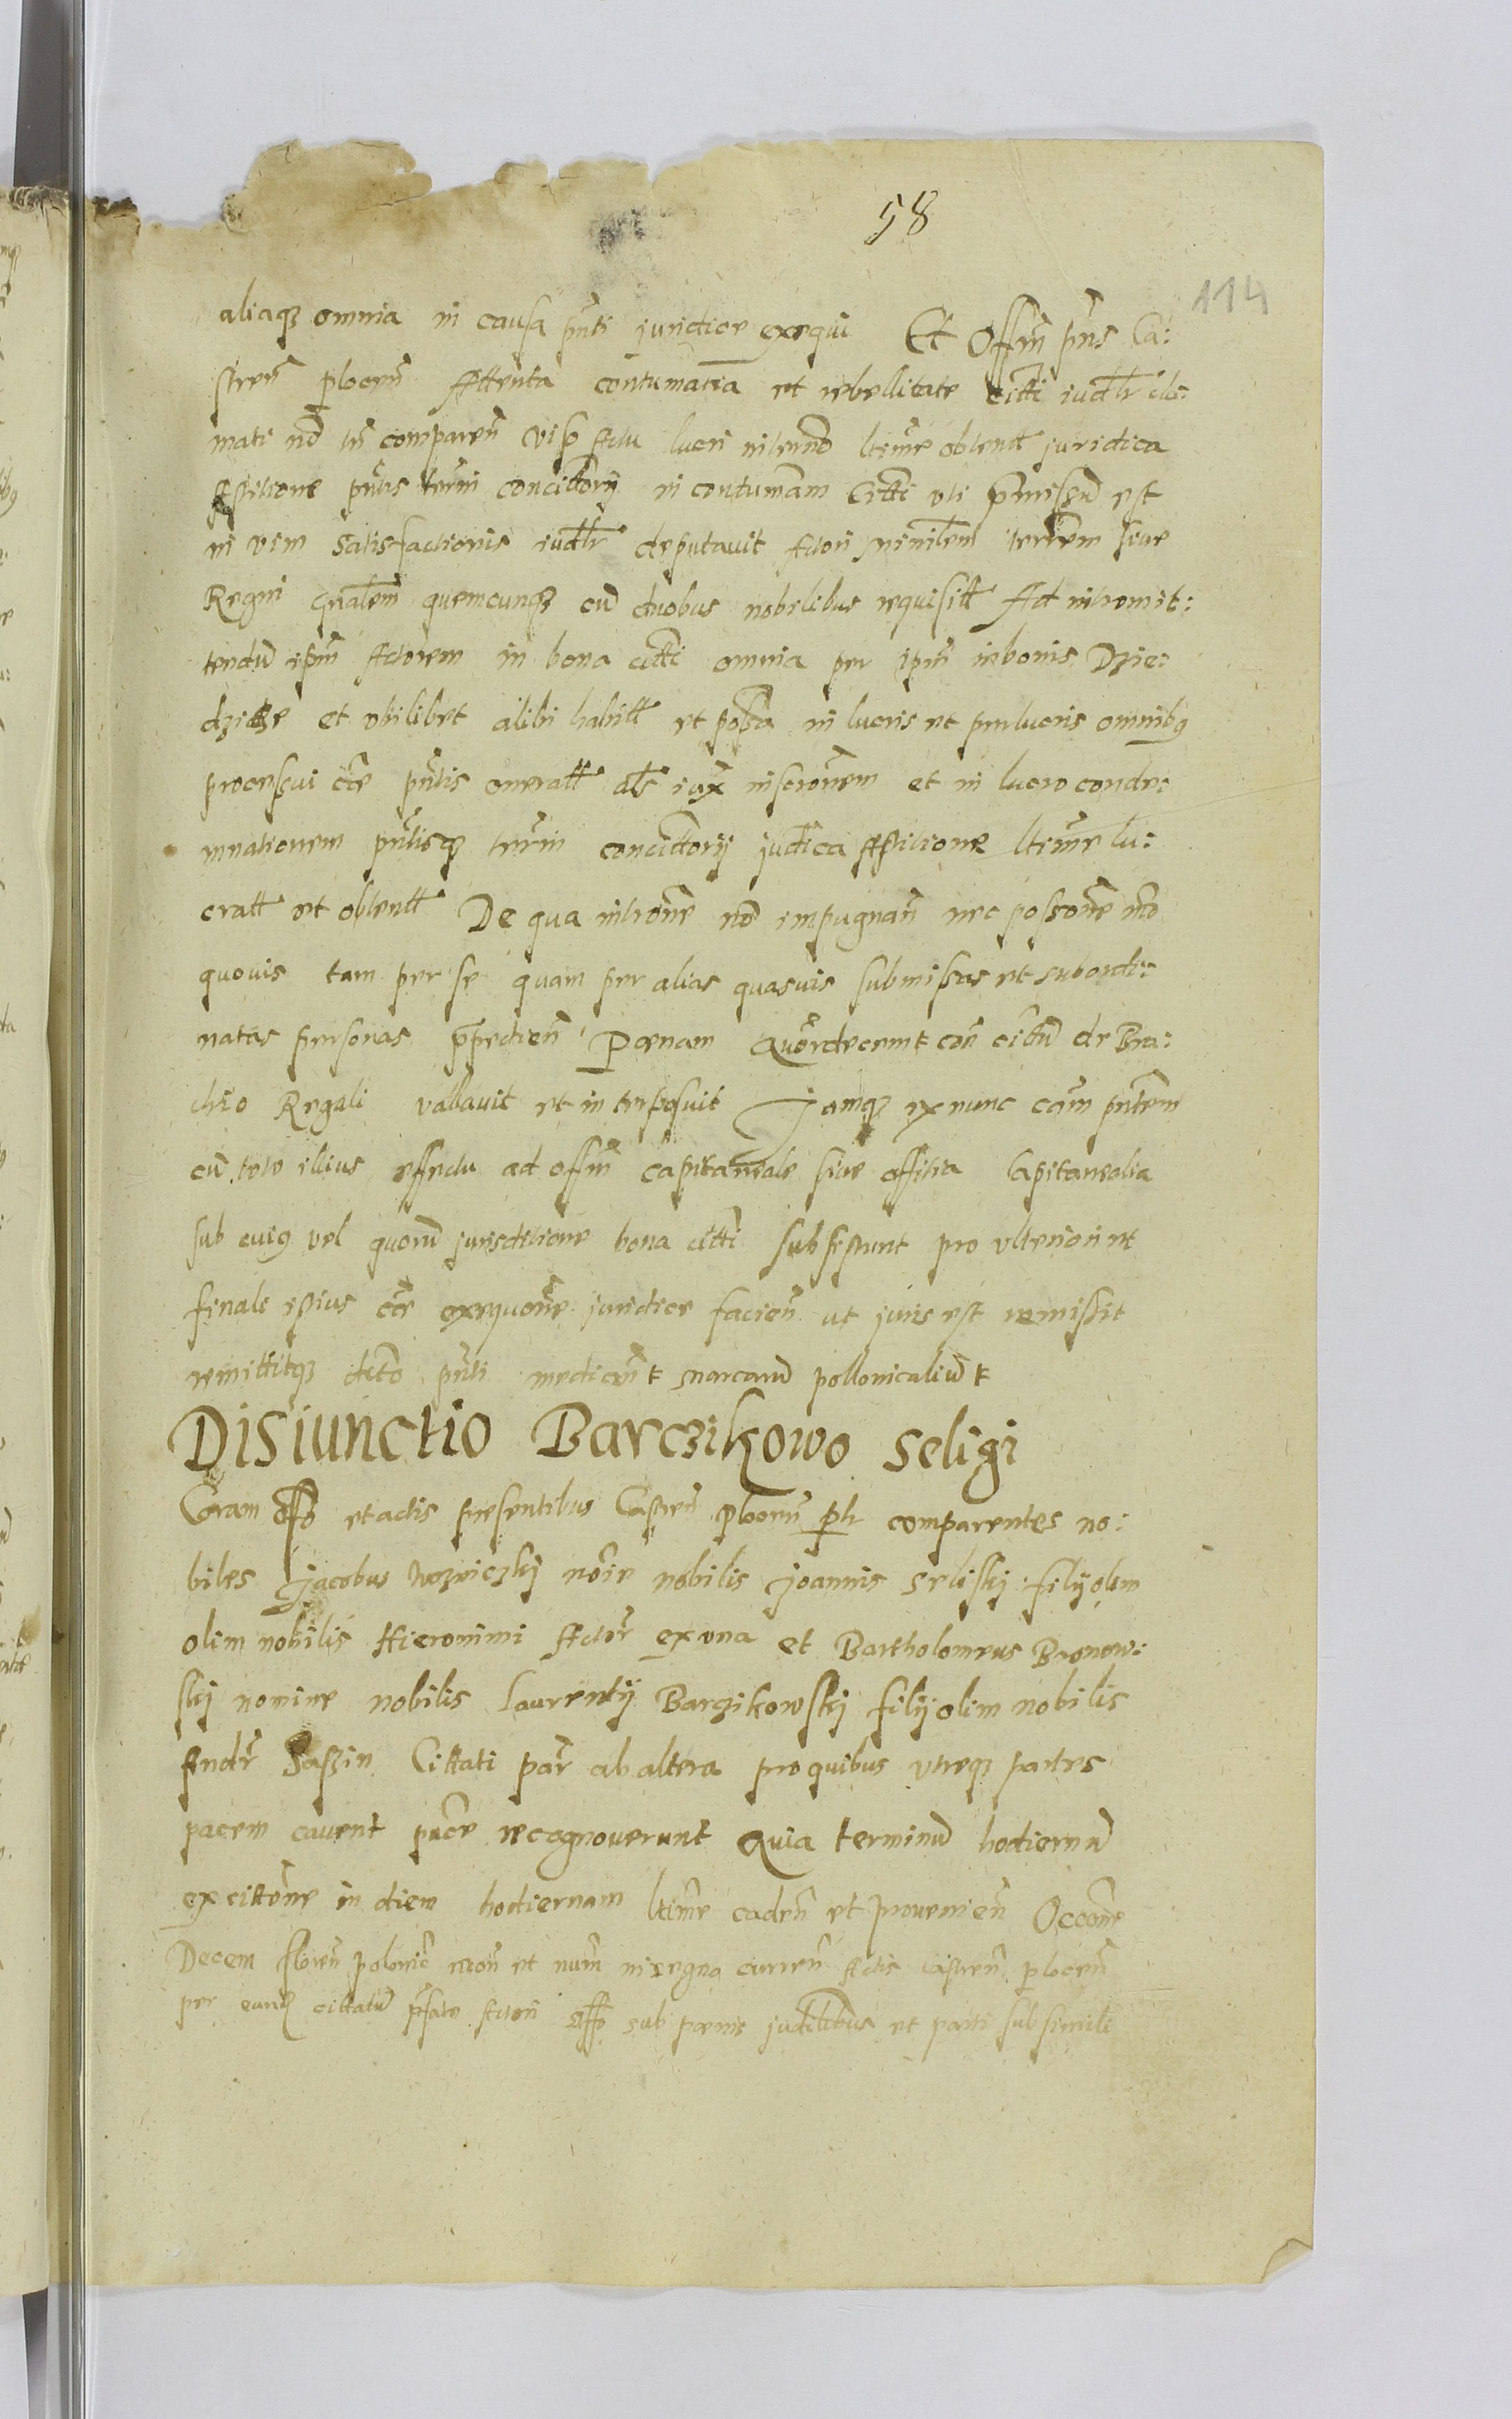 58
114
aliaqꝫ omnia in causa pñti juridice exequi Et Offm̃ pñs Ca:
streñ ploceñ Attenta contumacia et rebellitate citti iudlr
mati nō tñ compareñ visꝫ Actu lucri ltime obtentt juridica
Astitione pñtis termi concittorij in contumam Citti uti p̃missũ est
in vim satisfactionis iudlr deputavit Actori ministlem terrem sive
Regni gñalem quemcunqꝫ cũ duobus nobilibus requisitt Ad intromit:
tendũ ipm̃ Actorem in bona citti omnia per ipm̃ in bonis Dzie:
dzicze et ubilibet alibi habitt et possa in lucris et perlucris omnibꝰ
processui cãe pñtis oneratt als iux inscronem et in lucro conde:
mnationem pñtisqꝫ termi concittorij judica Astitione ltime lu:
cratt et obtentt De qua introne nō impugnañ nec possone mō
quovis tam per se quam per alias quasvis submissas et subordi:
natas personas p̃pedieñ Pœnam Quōrdecemt coñ cittũ de Bra:
chio Regali vallavit et interposuit Jamqꝫ ex nunc cam pñtem
cũ toto illius effectu ad offm̃ capitaneale sive officia Capitanealia
sub cuiꝰ vel quorũ jurisditione bona citti subsistunt pro ulteriori et
finale istius cãe exequone juridice facieñ ut juris est remissit
remittitqꝫ dicto pñti medicant marcarũ pollonicaliũ t
Disiunctio Barczikowo Seligi
Coram offo et actis presentibus Castreñ ploceñ plr comparentes no:
biles Jacobus noīe nobilis Joannis Seliskj filij olim
olim nobilis Hieronimi Actōr ex una et Bartholomeus Bronow:
skj nomine nobilis Laurentij Barczikowskj filij olim nobilis
Andr̃ Saszin Cittati par̃ ab altera pro quibus utreqꝫ partes
pacem cavent pñtẽ recognoverunt Quia terminũ hodiernũ
ex cittone in diem hodiernam ltime cadeñ et provenieñ Occone
Decem floreñ polonic et num̃ in regno curreñ Actis castreñ ploceñ
per eundẽ cittatũ p̃fato Actori offo sub pœnis judlibus et parti sub simili